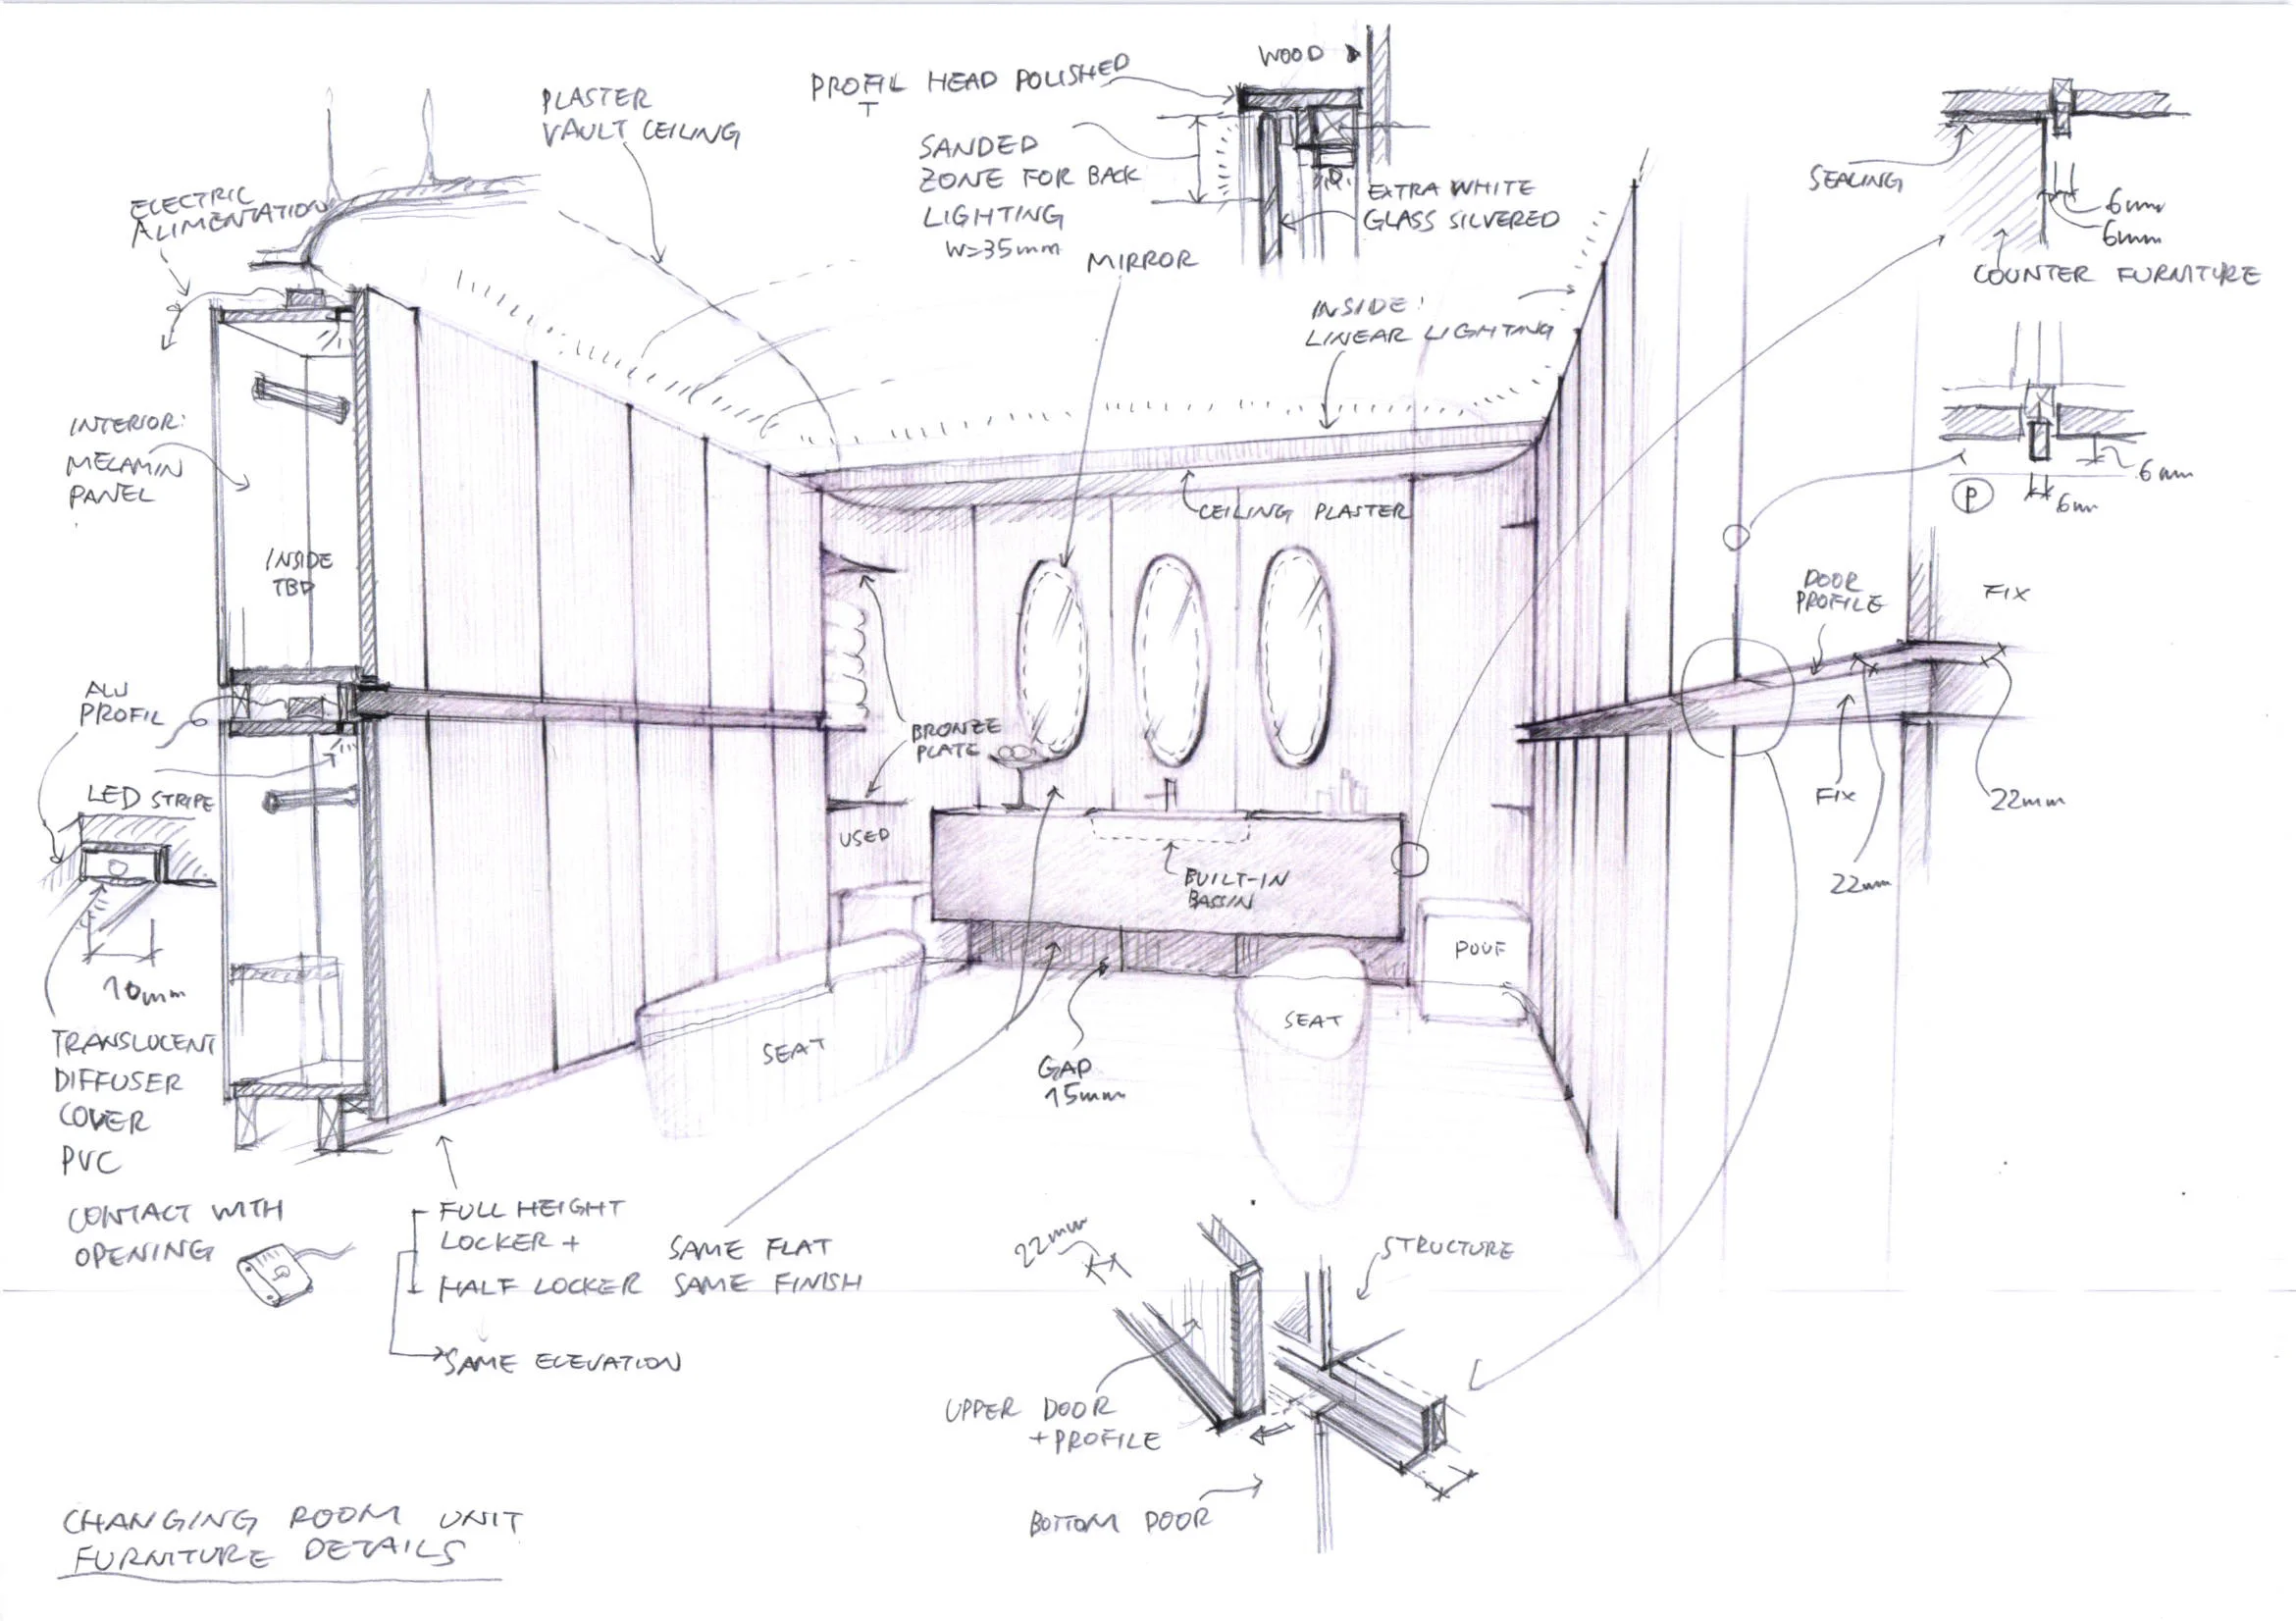 PLASTER
VAULT CEILING
PROFIL HEAD POLISHED
T
WOOD
SANDED
ZONE FOR BACK
LIGHTING
W=35mm
EXTRA WHITE
GLASS SILVERED
MIRROR
SEALING
6mm
6mm
COUNTER FURNITURE
ELECTRIC
ALIMENTATION
INSIDE:
LINEAR LIGHTING
INTERIOR:
MELAMIN
PANEL
INSIDE
TBD
CEILING PLASTER
6mm
P
6mm
DOOR
PROFILE
FIX
FIX
22mm
22mm
ALU
PROFIL
LED STRIPE
10mm
TRANSLUCENT
DIFFUSER
COVER
PVC
CONTACT WITH
OPENING
BRONZE
PLATE
USED
BUILT-IN
BASSIN
POUF
SEAT
SEAT
GAP
15mm
FULL HEIGHT
LOCKER +
HALF LOCKER
SAME ELEVATION
SAME FLAT
SAME FINISH
22mm
STRUCTURE
UPPER DOOR
+ PROFILE
BOTTOM DOOR
CHANGING ROOM UNIT
FURNITURE DETAILS